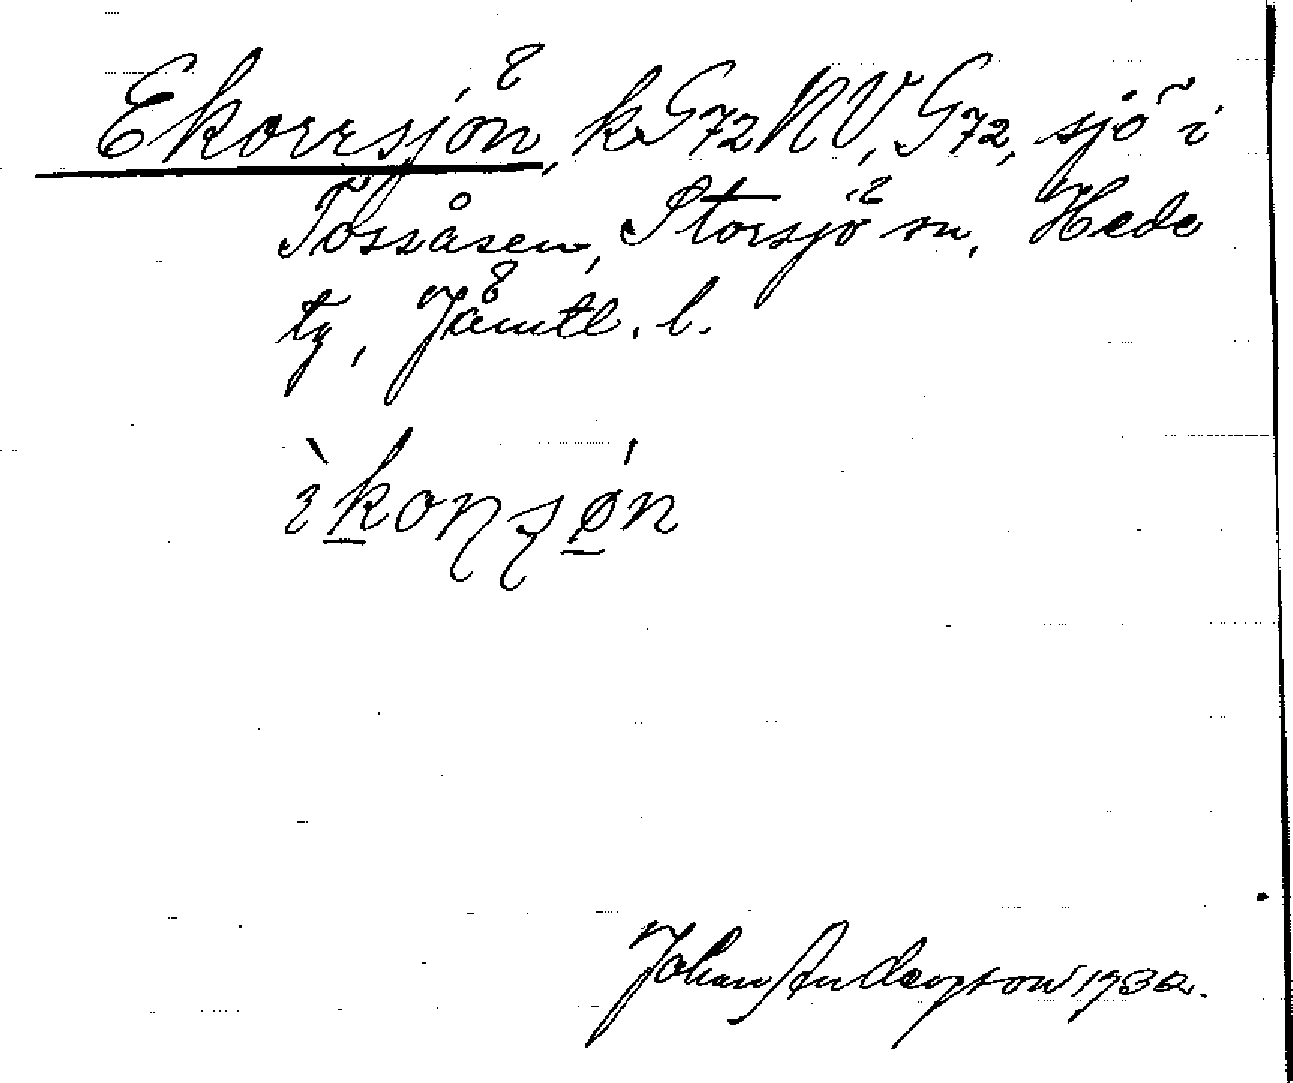 Ekorrsjön, kG72NV, G72, sjö i
Tossåsen, Storsjö sn, Hede
tg, Jämtl. l.
ìkonsǿn
Johan Anderson 1932.